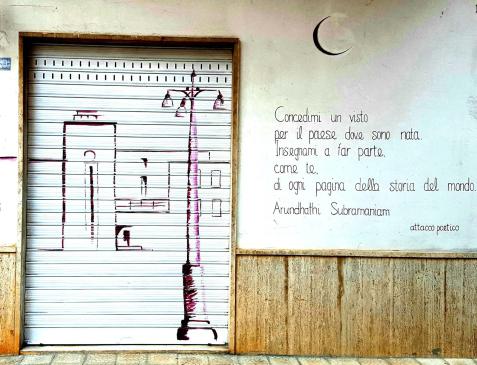 Concedimi un visto
per il paese dove sono nata.
Insegnami a far parte,
come te,
di ogni pagina della storia del mondo.
Arundhathi Subramaniam
attacco poetico